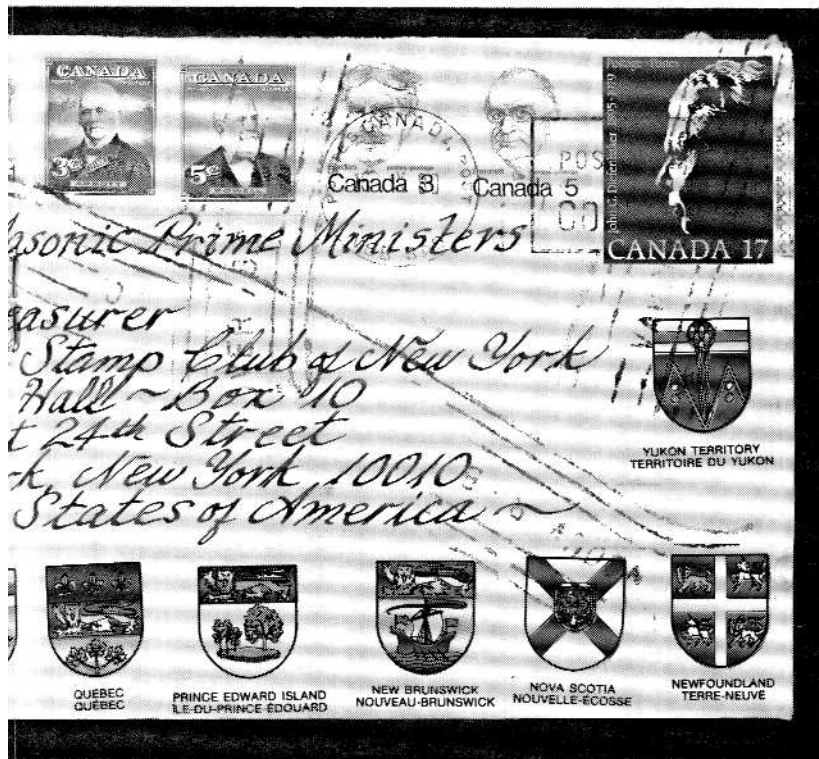 CANADA
3¢
CANADA
5¢
CANADA
Canada 3
Canada 5
POS
John G. Diefenbaker 1895-1979
CANADA 17
asonic Prime Ministers
easurer
Stamp Club of New York
Hall ~ Box 10
t 24th Street
k, New York, 10010
States of America ~
YUKON TERRITORY
TERRITOIRE DU YUKON
QUEBEC
QUÉBEC
PRINCE EDWARD ISLAND
ÎLE-DU-PRINCE-ÉDOUARD
NEW BRUNSWICK
NOUVEAU-BRUNSWICK
NOVA SCOTIA
NOUVELLE-ÉCOSSE
NEWFOUNDLAND
TERRE-NEUVE